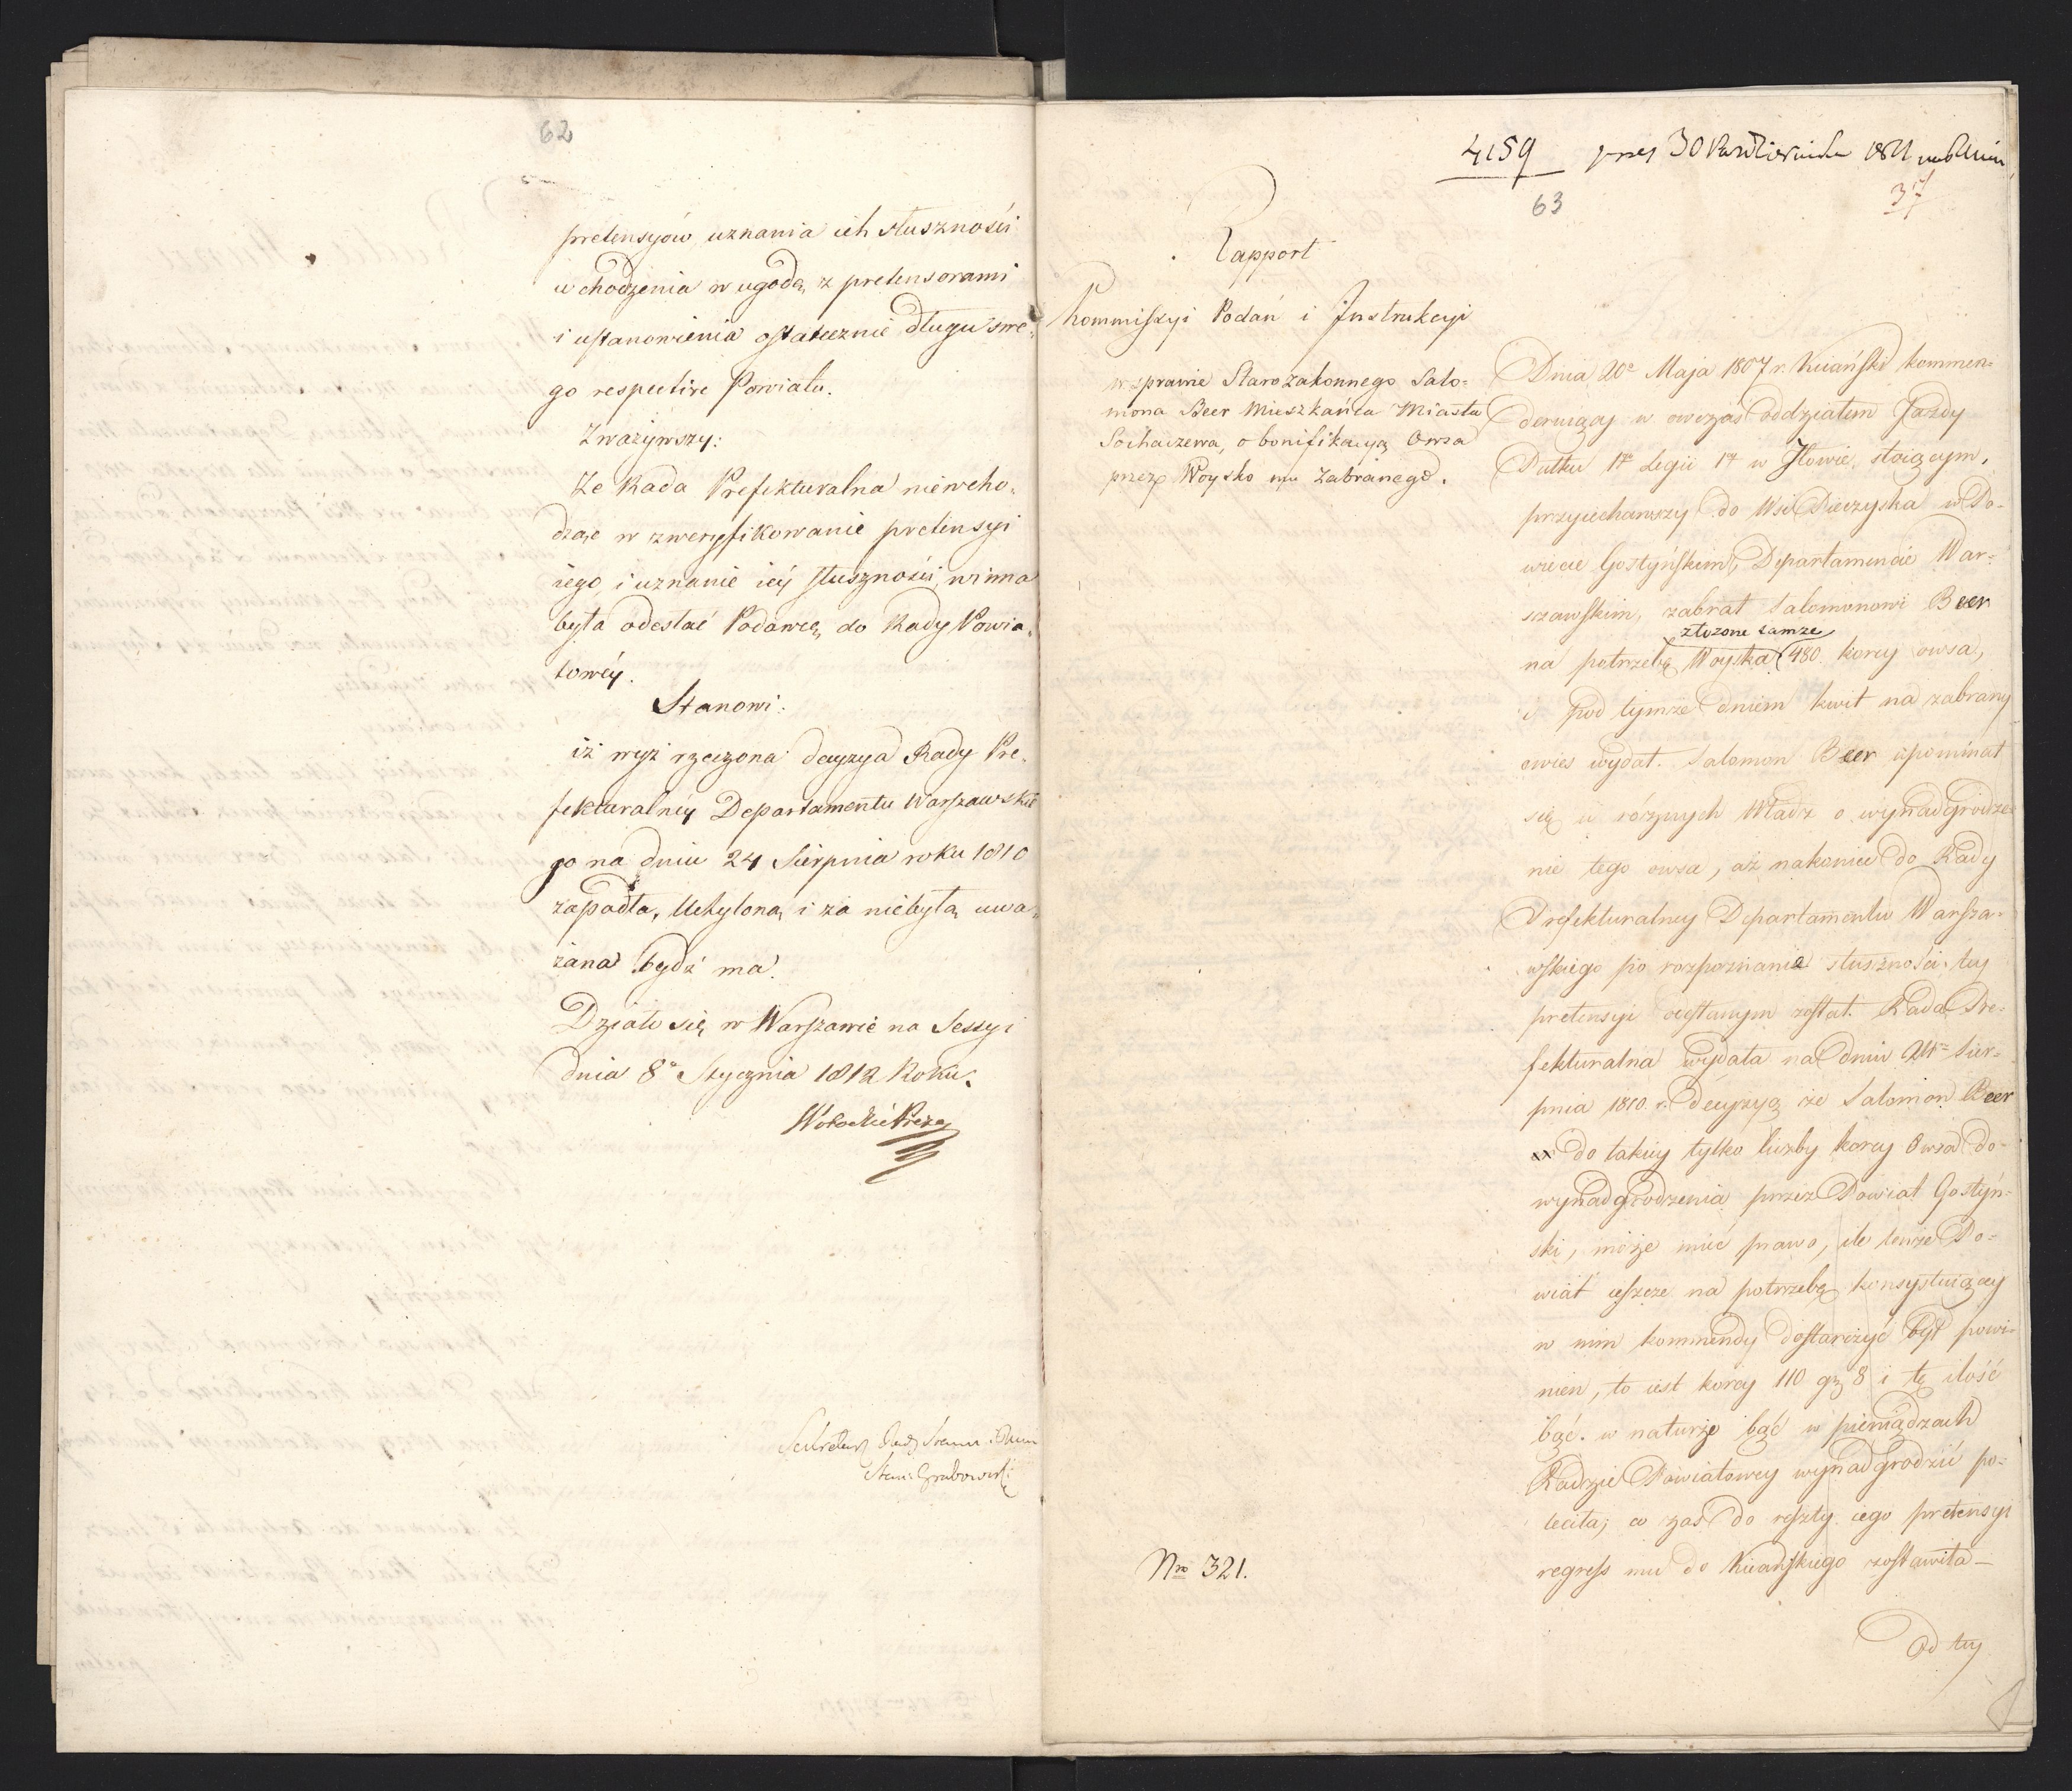 62
pretensyów uznania ich słuszności
wchodzenia w ugodę z pretensorami
i ustanowienia ostatecznie długu swe-
go respective Powiatu.
Zważywszy:
Że Rada Prefekturalna niewcho-
dząc w zweryfikowanie pretensyi
iego, i uznanie iéy słuszności, winna
była odesłać Podawcę do Rady Powia-
towéy.
Stanowi:
iż wyż rzeczona decyzya Rady Pre-
fekturalnéy Departamentu Warszawskie
go na dniu 24 Sierpnia roku 1810
zapadła, Uchyloną i za niebyłą uwa-
żana bydź ma.
Działo się w Warszawie na Sessyi
dnia 8o Stycznia 1812 Roku.
Sekretarz Rady Stanu
Stan: Grabowski
4159 30 Października 1811
63
37
Rapport
Kommissyi Podań i Instrukcyi
w sprawie Starozakonnego Salo-
mona Beer Mieszkańca Miasta
Sochaczewa, o bonifikacyą Owsa
przez Woysko mu Zabranego.
Nro 321.
Dnia 20o Maja 1807 r. Kuański kommen-
deruiący w owczas oddziałem Jazdy
Pułku 1go Legii 1éy w Iłowie, stoiącym,
przyiechawszy do Wsi Pieczyska w Po-
wiecie Gostyńskim, Departamencie War-
szawskim, zabrał Salomonowi Beer
złożone tamże
na potrzebę Woyska 480 korcy owsa,
i pod tymże dniem kwit na zabrany
owies wydał. Salomon Beer upominał
się u róznych Władz o wynadgrodze-
nie tego owsa, aż nakoniec do Rady
Prefekturalney Departamentu Warsza-
wskiego po rozpoznanie słuszności tey
pretensyi odesłanym został. Rada Pre-
fekturalna wydała na dniu 24= Sier-
pnia 1810 r. decyzyą że Salomon Beer
do takiey tylko liczby korcy Owsa do
wynadgrodzenia przez Powiat Gostyń-
ski, może mieć prawo, ile tenże Po-
wiat ieszcze na potrzebę konsystuiącey
w nim kommendy dostarczyć był powi-
nien, to iest korcy 110 gy 8 i tę ilość
bąć w naturze bąć w pieniądzach
Radzie Powiatowey wynadgrodzić po-
leciła; co zaś do reszty iego pretensyi
regress mu do Kuańskiego zostawiła —
Od tey